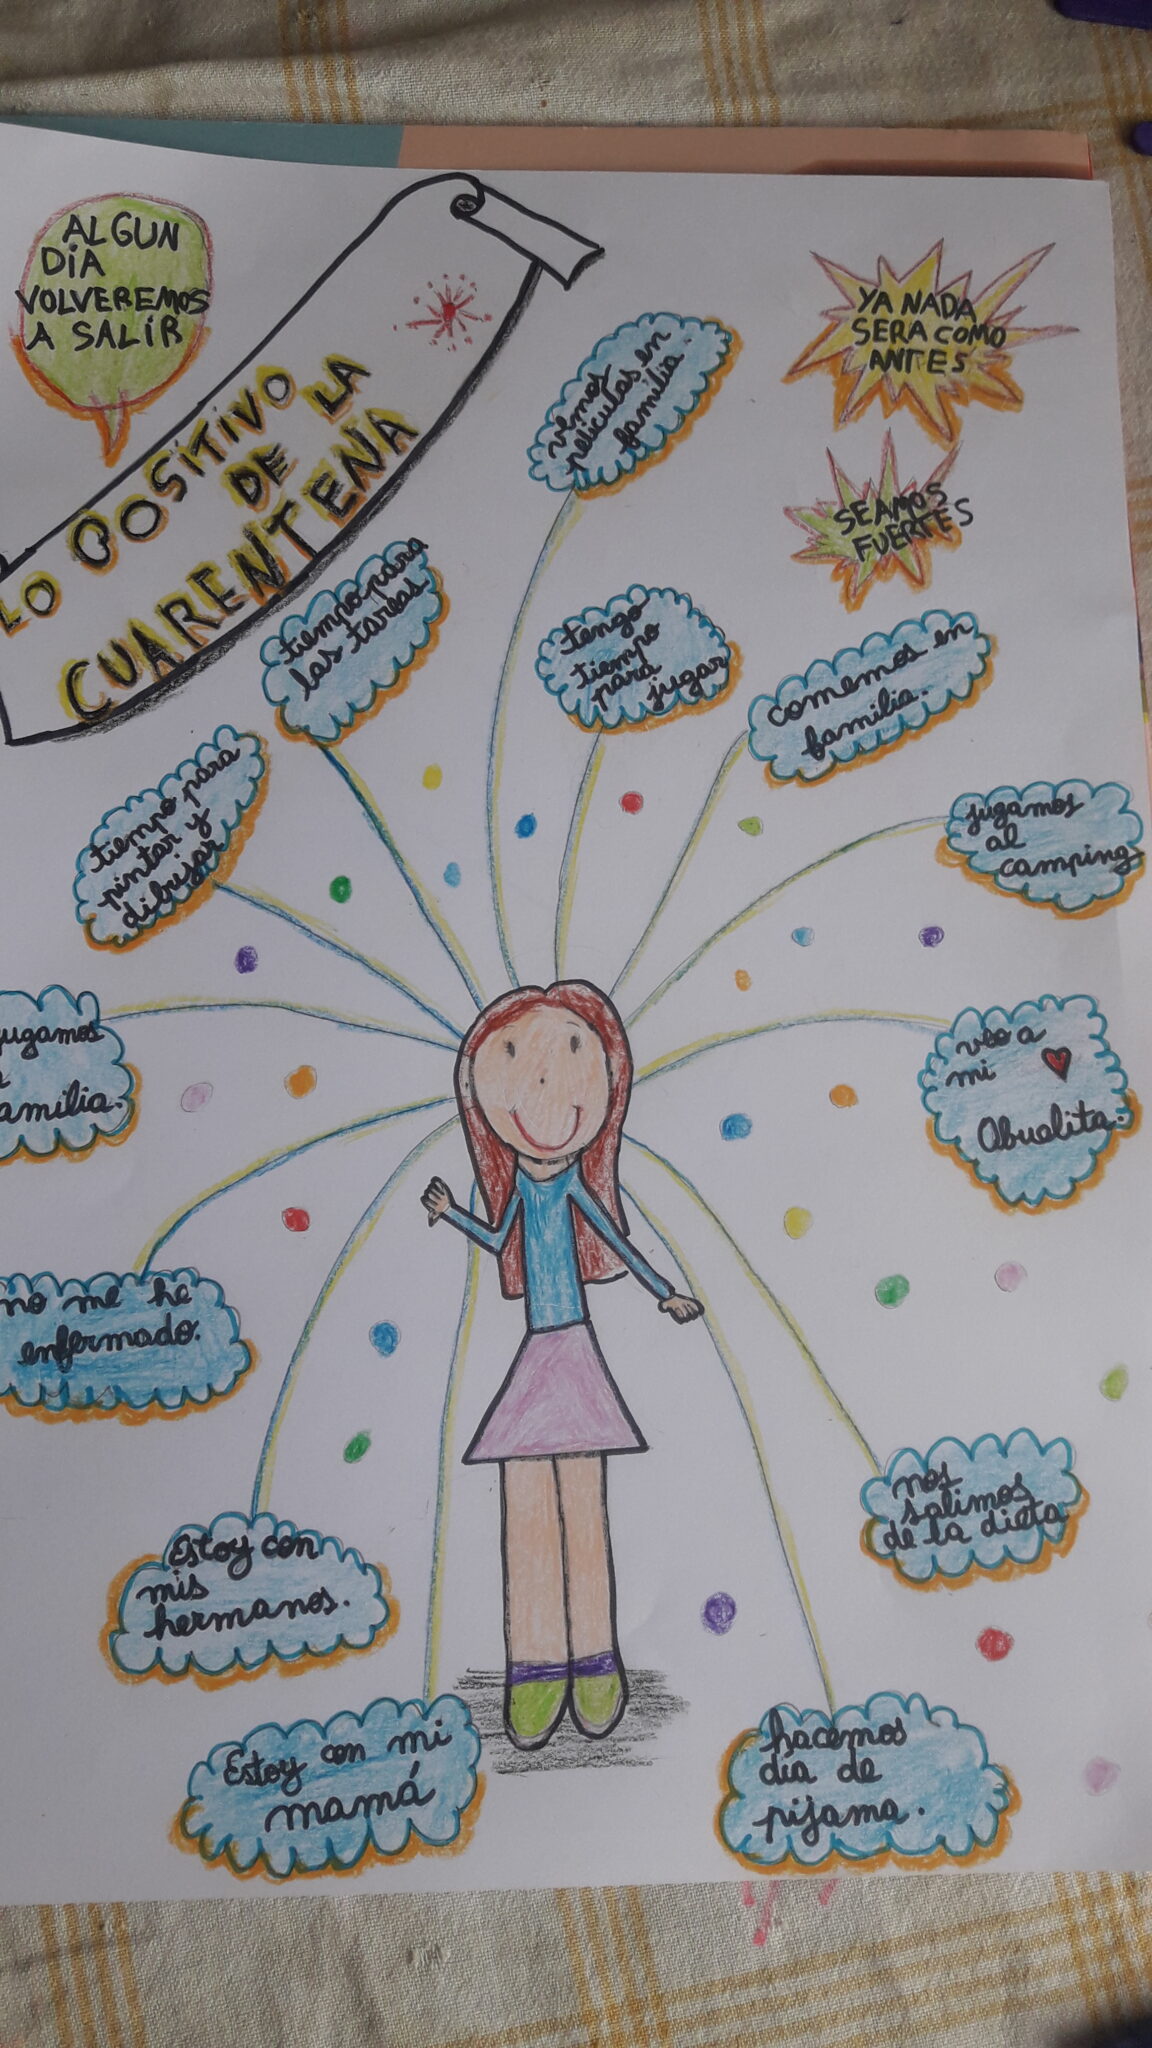 ALGUN
DIA
VOLVEREMOS
A SALIR
LO POSITIVO
DE LA
CUARENTENA
YA NADA
SERA COMO
ANTES
SEAMOS
FUERTES
vemos
peliculas en
familia.
tiempo para
las tareas.
tengo
tiempo
para
jugar
comemos en
familia.
tiempo para
pintar y
dibujar
jugamos
al
camping
jugamos
familia.
veo a
mi
Abuelita.
no me he
enfermado.
nos
salimos
de la dieta
Estoy con
mis
hermanos.
Estoy con mi
mamá
hacemos
dia de
pijama.